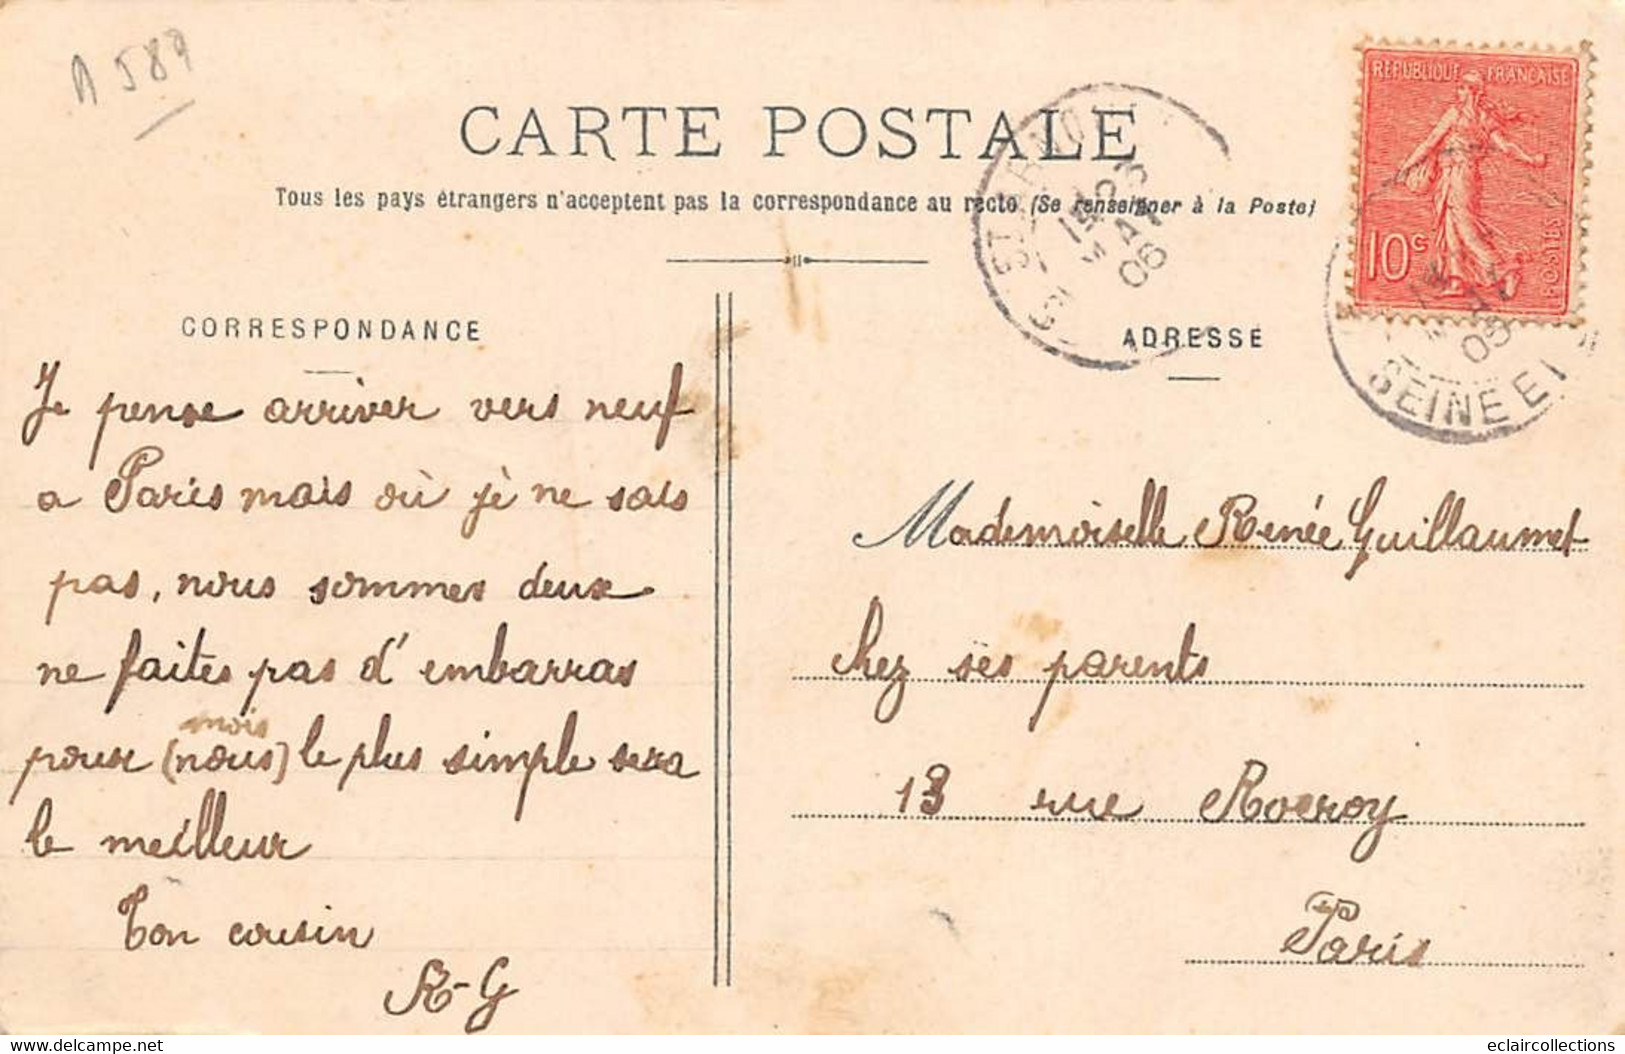 A 589
CARTE POSTALE
Tous les pays étrangers n'acceptent pas la correspondance au recto (Se renseigner à la Poste)
REPUBLIQUE FRANÇAISE
10c
POSTES
06
SEINE ET
CORRESPONDANCE
ADRESSE
Je pense arriver vers neuf
a Paris mais où je ne sais
pas, nous sommes deux
ne faites pas d'embarras
mois
pour (nous) le plus simple sera
le meilleur
Ton cousin
R-G
Mademoiselle Renée Guillaumet
chez ses parents
13 rue Rocroy
Paris
www.delcampe.net
eclaircollections